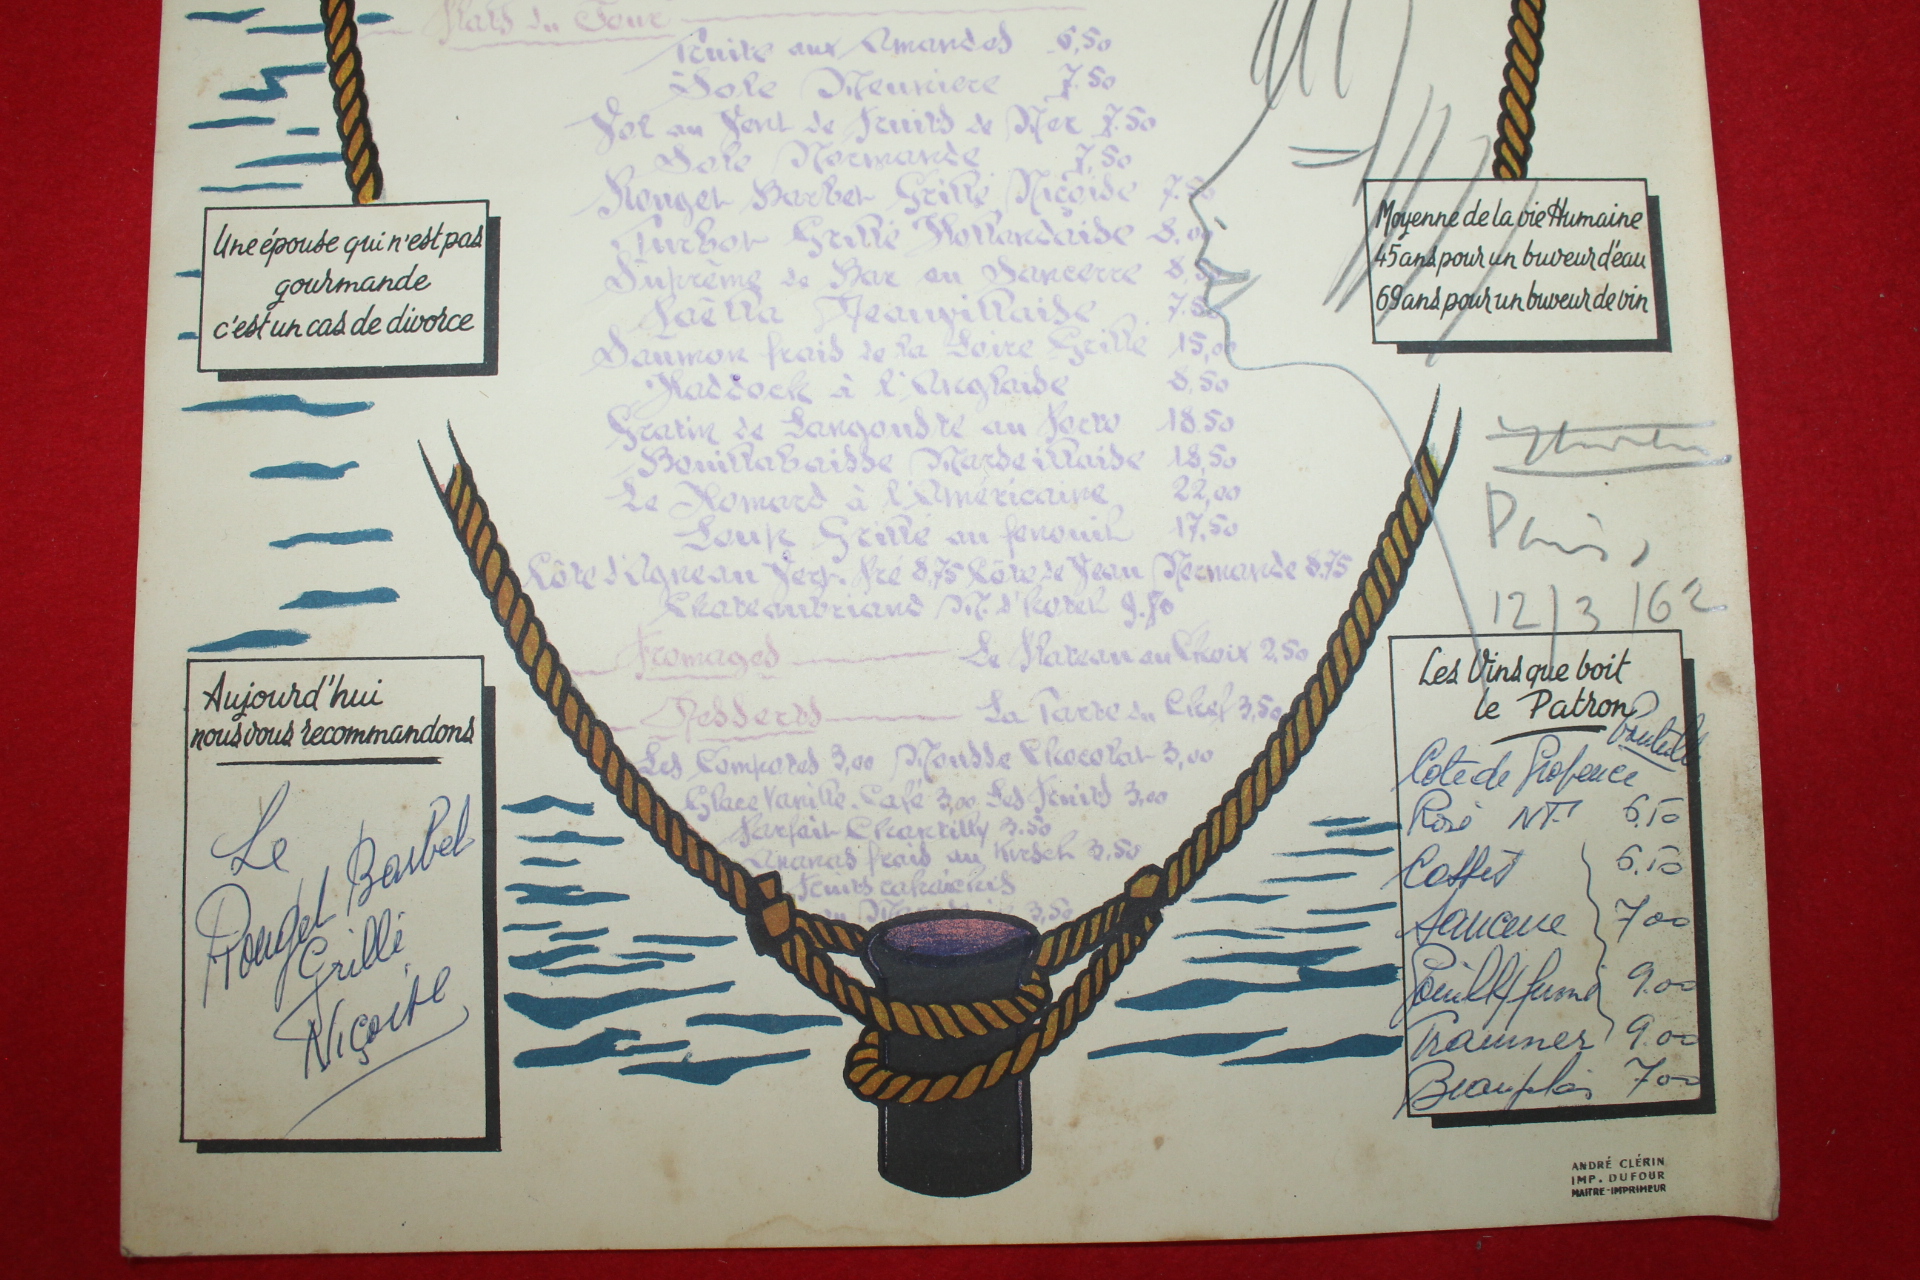 Plats du Jour
Truite aux Amandes 6,50
Sole Meuniere 7.50
Vol au Vent de Fruits de Mer 7.50
Sole Normande 7,50
Rouget Barbet Grillé Niçoise 7.50
Turbot Grillé Hollandaise 8.00
Suprême de Bar au Sancerre 8,50
Paëlla 7.50
Saumon frais de la Loire Grillé 15,00
Haddock à l'Anglaise 8,50
Gratin de Langouste au Porto 18.50
Bouillabaisse Marseillaise 18,50
Le Homard à l'Américaine 22,00
Loup Grillé au fenouil 17,50
Côte d'Agneau Vert-Pré 8,75 Côte de Veau Normande 8.75
Chateaubriand M. d'hotel 9.50
Fromages Le Plateau au Choix 2,50
Desserts La Tarte du Chef 3,50
Les Compotes 3,00 Mousse Chocolat 3,00
Glace Vanille. Café 3,00 Les Fruits 3,00
Parfait Chantilly 3.50
Ananas frais au Kirsch 3,50
Fruits rafraichis
au 3,50
Une épouse qui n'est pas
gourmande
c'est un cas de divorce
Moyenne de la vie Humaine
45 ans pour un buveur d'eau
69 ans pour un buveur de vin
Paris,
12/3/62
Aujourd'hui
nous vous recommandons
Le
Rouget Barbet
Grillé
Niçoise
Les Vins que boit
le Patron
bouteille
Cote de Provence
Rosé NF. 6.50
Cassis 6.50
Sancerre 7 00
Pouilly fumé 9.00
Traminer 9.00
Beaujolais 7 00
ANDRÉ CLÉRIN
IMP. DUFOUR
MAITRE-IMPRIMEUR